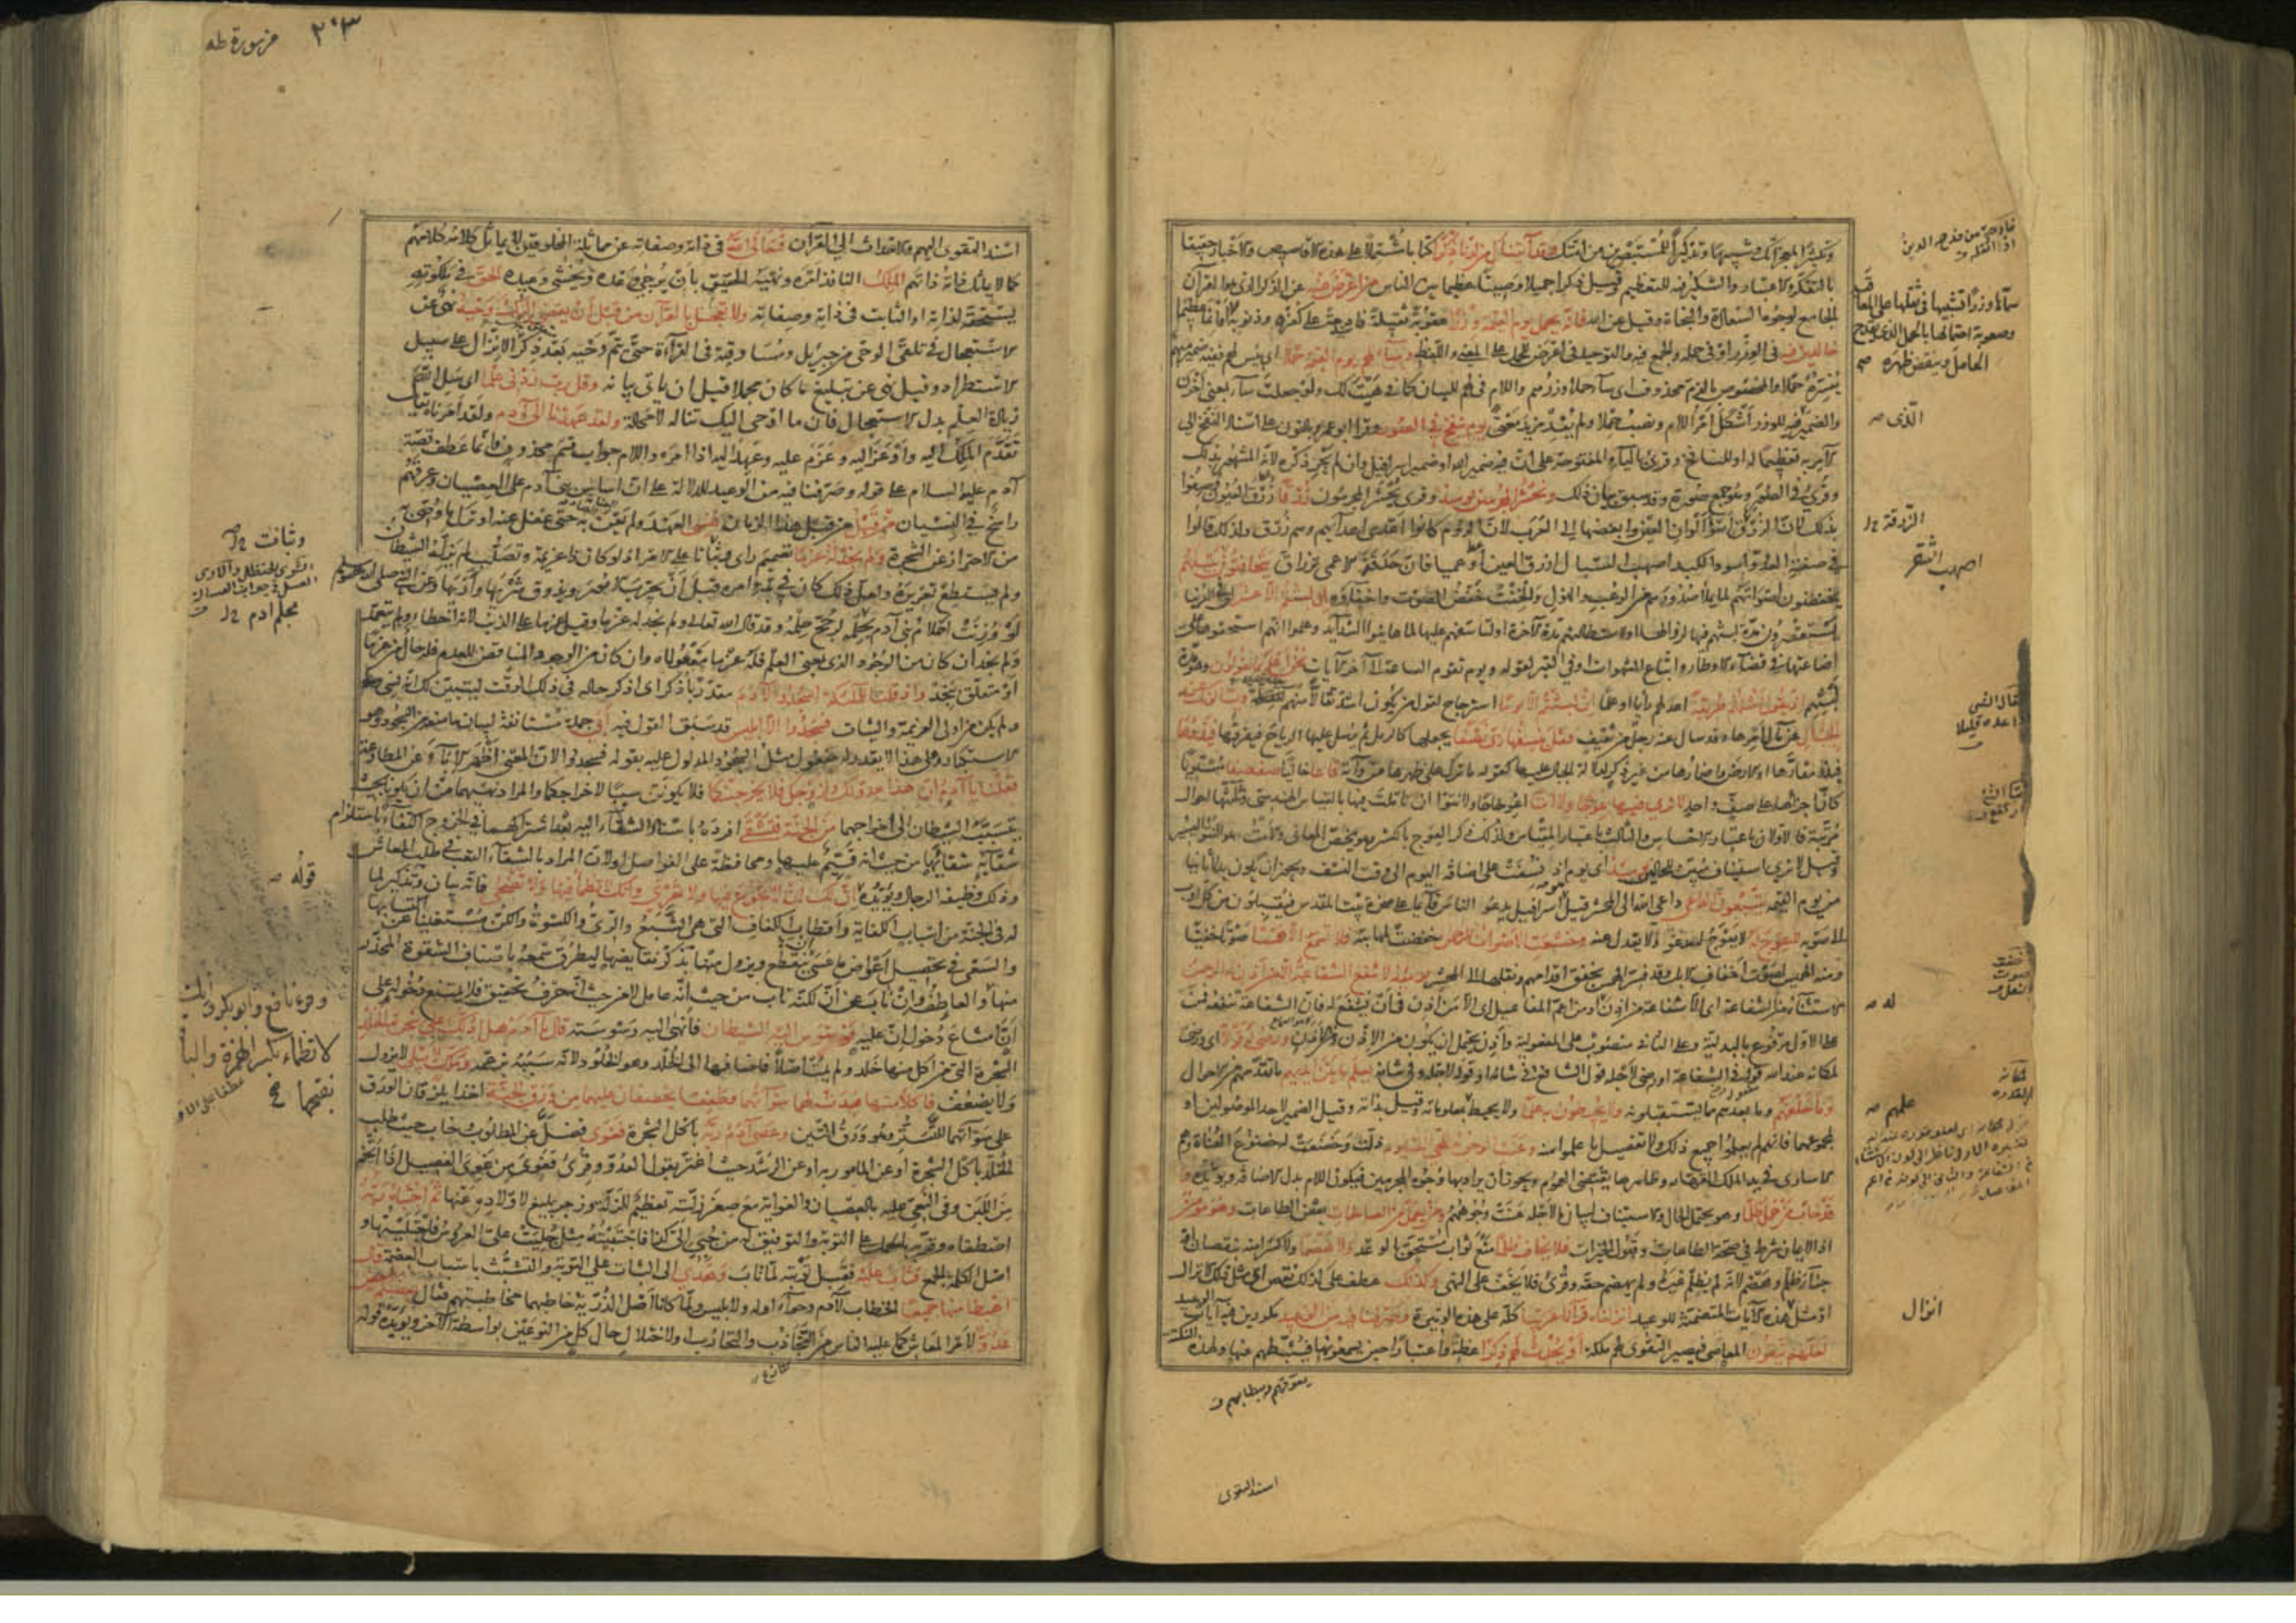 وتكثيرا لمعجزاتك وتنبيها وتذكيرا للمستبصرين من امتك وقد آتيناك من لدنا ذكرا كتابا مشتملا على هذه الاقاصيص والاخبار حقيقا
بالتفكر والاعتبار والتنكير فيه للتعظيم وقيل ذكرا جميلا وصيتا عظيما بين الناس من اعرض عنه عن الذكر الذي هو القرآن
الجامع لوجوه السعادة والنجاة وقيل عن الله فانه يحمل يوم القيمة وزرا عقوبة ثقيلة فادحة على كفره وذنوبه
خالدين فيه في الوزر او في حمله والجمع فيه والتوحيد في اعرض للحمل على المعنى واللفظ وساء لهم يوم القيمة حملا اي بئس لهم ففيه ضمير مبهم
يفسره حملا والمخصوص بالذم محذوف اي ساء حملا وزرهم واللام في لهم للبيان كما في هيت لك ولو جعلت ساء بمعنى احزن
والضمير فيه للوزر اشكل امر اللام ونصب حملا ولم يفد مزيد معنى يوم ينفخ في الصور وقرا ابو عمرو بالنون على اسناد النفخ الى
الآمر به تعظيما له او للنافخ وقرئ بالياء المفتوحة على ان فيه ضمير الله او ضمير اسرافيل وان لم يجر ذكره لانه المشهور بذلك
وقرئ في الصور وهو جمع صورة وقد سبق بيان ذلك ونحشر المجرمين يومئذ وقرئ ويحشر المجرمون زرقا زرق العيون وصفوا
بذلك لان الزرقة اسوأ الوان العين وابغضها الى العرب لان الروم كانوا اعدى اعدائهم وهم زرق ولذلك قالوا
في صفة العدو اسود الكبد اصهب السبال ازرق العين او عميا فان حدقة الاعمى تزراق يتخافتون بينهم
يخفضون اصواتهم لما يملأ صدورهم من الرعب والهول والخفت خفض الصوت واخفاؤه ان لبثتم الا عشرا اي في الدنيا
يستقصرون مدة لبثهم فيها لزوالها او لاستطالتهم مدة الآخرة او لتاسفهم عليها لما عاينوا الشدائد وعلموا انهم استحقوها على
اضاعتها في قضاء الاوطار واتباع الشهوات او في القبر لقوله ويوم تقوم الساعة الى آخر الآيات نحن اعلم بما يقولون وهو مدة
لبثهم اذ يقول امثلهم طريقة اعدلهم رايا او عملا ان لبثتم الا يوما استرجاح لقول من يكون اشد تقالا منهم ويسئلونك عن
الجبال عن مآل امرها وقد سال عنه رجل من ثقيف فقل ينسفها ربي نسفا يجعلها كالرمل ثم يرسل عليها الرياح فيفرقها فيذرها
فيذر مقارها او الارض واضمارها من غير ذكر لدلالة الجبال عليها كقوله ما ترك على ظهرها من دآبة قاعا خاليا صفصفا مستويا
كان اجزاءها على صف واحد لا ترى فيها عوجا ولا امتا اعوجاجا ولا نتوا ان تاملت فيها بالقياس الهندسي وثلثتها احوال
مترتبة فالاولان باعتبار الاحساس والثالث باعتبار المقياس ولذلك ذكر العوج بالكسر وهو يخص المعاني والامت هو النتو اليسير
وقيل لا ترى استيناف مبين للحالين يومئذ اي يوم اذ نسفت على اضافة اليوم الى وقت النسف ويجوز ان يكون بدلا ثانيا
من يوم القيمة يتبعون الداعي داعي الله الى المحشر قيل اسرافيل يدعو الناس قائما على صخرة بيت المقدس فيقبلون من كل اوب
الى صوبه لا عوج له لا يعوج له مدعو ولا يعدل عنه وخشعت الاصوات للرحمن خفضت لمهابته فلا تسمع الا همسا صوتا خفيا
ومنه الهميس لصوت اخفاف الابل وقد فسر الهمس بخفق اقدامهم ونقلها الى المحشر يومئذ لا تنفع الشفاعة الا من اذن له الرحمن
الاستثناء من الشفاعة اي الا شفاعة من اذن او من اعم المفاعيل اي الا من اذن في ان يشفع له فان الشفاعة تنفعه فمن
على الاول مرفوع بالبدلية وعلى الثاني منصوب على المفعولية واذن يحتمل ان يكون من الاذن ورضي له قولا اي ورضي
لمكانه عند الله قوله في الشفاعة او رضي لاجله قول الشافع في شانه او قوله لاجله وفي شانه يعلم ما بين ايديهم ما تقدمهم من الاحوال
وما خلفهم وما بعدهم مما يستقبلونه ولا يحيطون به علما ولا يحيط بمعلوماته وقيل بذاته وقيل الضمير لاحد الموصولين او
لمجموعهما فانهم لم يعلموا جميع ذلك ولا تفصيل ما علموا منه وعنت الوجوه للحي القيوم ذلت وخضعت له خضوع العناة وهم
الاسارى في يد الملك القهار وظاهرها يقتضي العموم ويجوز ان يراد بها وجوه المجرمين فيكون اللام بدل الاضافة ويؤيده و
قد خاب من حمل ظلما وهو يحتمل الحال والاستيناف لبيان ما لاجله عنت وجوههم ومن يعمل من الصالحات بعض الطاعات وهو مؤمن
اذ الايمان شرط في صحة الطاعات وقبول الخيرات فلا يخاف ظلما منع ثواب مستحق بالوعد ولا هضما ولا كسرا منه بنقصان او
جزاء ظلم وهضم لانه لم يظلم غيره ولم يهضم حقه وقرئ فلا يخف على النهي وكذلك عطف على كذلك نقص اي مثل ذلك الانزال
او مثل هذه الآيات المتضمنة للوعيد انزلناه قرآنا عربيا كله على هذه الوتيرة وصرفنا فيه من الوعيد مكررين فيه آيات
لعلهم يتقون المعاصي فيصير التقوى لهم ملكة او يحدث لهم ذكرا عظة واعتبارا حين يسمعونها فيثبطهم عنها ولهذه
الذى صح
الزرقة
اصهب الشقر
له صح
علمهم صح
انزال
سماها وزرا تشبيها في ثقلها على المعاقب
وصعوبة احتمالها بالحمل الذي يفدح
الحامل وينقض ظهره صح
اسند التقوى
من سورة طه
٢٠٣
اسند التقوى اليهم والاحداث الى القرآن فتعالى الله في ذاته وصفاته عن مماثلة المخلوقين لا يماثل كلامه كلامهم
كما لا يماثل ذاته ذاتهم الملك النافذ امره ونهيه الحقيق بان يرجى وعده ويخشى وعيده الحق في ملكوته
يستحقه لذاته او الثابت في ذاته وصفاته ولا تعجل بالقرآن من قبل ان يقضى اليك وحيه نهي عن
الاستعجال في تلقي الوحي من جبريل ومساوقته في القراءة حتى يتم وحيه بعد ذكر الانزال على سبيل
الاستطراد وقيل نهي عن تبليغ ما كان مجملا قبل ان ياتي بيانه وقل رب زدني علما اي سل الله
زيادة العلم بدل الاستعجال فان ما اوحي اليك تناله لا محالة ولقد عهدنا الى آدم ولقد امرناه يقال
تقدم الملك اليه واوعز اليه وعزم عليه وعهد اليه اذا امره واللام جواب قسم محذوف وانما عطف قصة
آدم عليه السلام على قوله وصرفنا فيه من الوعيد للدلالة على ان اساس بني آدم على العصيان وعرقهم
راسخ في النسيان من قبل من قبل هذا الزمان فنسي العهد ولم يعن به حتى غفل عنه او ترك ما وصي به
من الاحتراز عن الشجرة ولم نجد له عزما تصميم راي وثباتا على الامر اذ لو كان ذا عزيمة وتصلب لم يزله الشيطان
ولم يستطع تغريره ولعل ذلك كان في بدء امره قبل ان يجرب الامور ويذوق شريها واريها وعن النبي صلى الله عليه وسلم
لو وزنت احلام بني آدم بحلمه لرجح حلمه وقد قال الله تعالى ولم نجد له عزما وقيل عزما على الذنب لانه اخطا ولم يتعمد
ولم نجد ان كان من الوجود الذي بمعنى العلم فله عزما مفعولاه وان كان من الوجود المناقض للعدم فله حال من عزما
او متعلق بنجد واذ قلنا للملئكة اسجدوا لآدم مقدر باذكر اي اذكر حاله في ذلك الوقت ليتبين لك انه نسي
ولم يكن من اولي العزيمة والثبات فسجدوا الا ابليس قد سبق القول فيه ابى جملة مستانفة لبيان ما منعه من السجود وهو
الاستكبار وعلى هذا لا يقدر له مفعول مثل السجود المدلول عليه بقوله فسجدوا لان المعنى اظهر الاباء عن المطاوعة
فقلنا يا آدم ان هذا عدو لك ولزوجك فلا يخرجنكما فلا يكونن سببا لاخراجكما والمراد نهيهما عن ان يكونا بحيث
يتسبب الشيطان الى اخراجهما من الجنة فتشقى افرده باسناد الشقاء اليه بعد اشراكهما في الخروج اكتفاء باستلزام
شقائه شقاءها من حيث انه قيم عليها ومحافظة على الفواصل او لان المراد بالشقاء التعب في طلب المعاش
وذلك وظيفة الرجال ويؤيده ان لك ان لا تجوع فيها ولا تعرى وانك لا تظمأ فيها ولا تضحى فانه بيان وتذكير لما
له في الجنة من اسباب الكفاية واقطاب الكفاف التي هي الشبع والري والكسوة والكن مستغنيا عن اكتسابها
والسعي في تحصيل اعواض ما عسى ينقطع ويزول منها بذكر نقائضها ليطرق سمعه باصناف الشقوة المحذر
منها والعاطف وان ناب عن ان لكنه ناب من حيث انه عامل لا من حيث انه حرف تحقيق فلا يمتنع دخوله على
ان امتناع دخول ان عليه فوسوس اليه الشيطان فانهى اليه وسوسته قال يا آدم هل ادلك على شجرة الخلد
الشجرة التي من اكل منها خلد ولم يمت اصلا فاضافها الى الخلد وهو الخلود لانه سببه بزعمه وملك لا يبلى لا يزول
ولا يضعف فاكلا منها فبدت لهما سوآتهما وطفقا يخصفان عليهما من ورق الجنة اخذا يلزقان الورق
على سوآتهما للتستر وهو ورق التين وعصى آدم ربه باكل الشجرة فغوى فضل عن المطلوب وخاب حيث طلب
الخلد باكل الشجرة او عن المامور به او عن الرشد حيث اغتر بقول العدو وقرئ فغوي من غوي الفصيل اذا اتخم
من اللبن وفي النعي عليه بالعصيان والغواية مع صغر زلته تعظيم للزلة وزجر بليغ لاولاده عنها ثم اجتباه ربه
اصطفاه وقربه بالحمل على التوبة والتوفيق له من جبي الي كذا فاجتبيته مثل جليت علي العروس فاجتليتها و
اصل الكلمة الجمع فتاب عليه فقبل توبته لما تاب وهدى الى الثبات على التوبة والتشبث باسباب العصمة قال
اهبطا منها جميعا الخطاب لآدم وحواء او له ولابليس ولما كانا اصل الذرية خاطبهما مخاطبتهم فقال بعضكم لبعض
عدو لامر المعاش كما عليه الناس من التجاذب والتحارب او لاختلال حال كل من النوعين بواسطة الآخر ويؤيده قوله
وثبات
بحلم آدم
قوله صح
وقرء نافع وابو بكر وانك
لا تظماء بكسر الهمزة والباقون
بفتحها